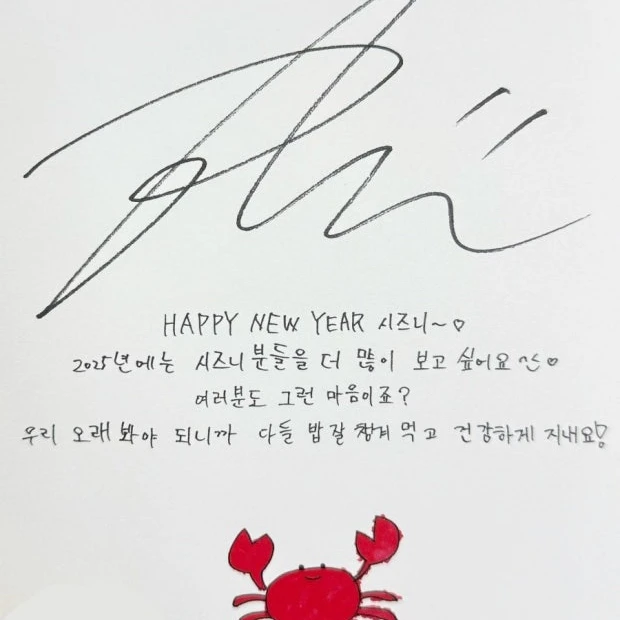 HAPPY NEW YEAR 시즈니~♡
2025년에는 시즈니분들을 더 많이 보고 싶어요^^♡
여러분도 그런 마음이죠?
우리 오래 봐야 되니까 다들 밥 잘 챙겨 먹고 건강하게 지내요!